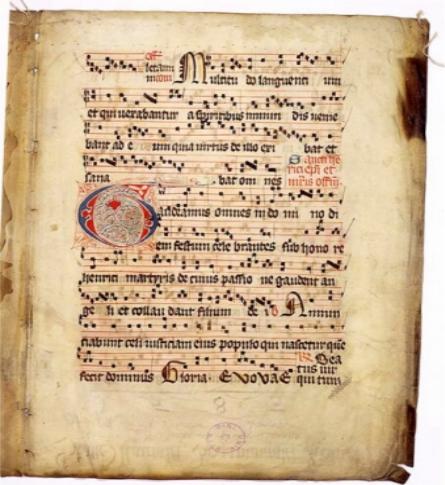 Multitu do languenti um
et qui uexabantur a spiritibus inmun dis uenie
bant ad e um quia uirtus de illo exi bat et
sana bat om nes
Sancti he
rici epi et
Gaudeamus omnes in do mi no di
em festum cele brantes sub hono re
henrici martyris de cuius passio ne gaudent an
ge li et collau dant filium de i Annun
ciabunt celi iusticiam eius populo qui nascetur que
Bea
fecit dominus Gloria. EVOVAE tus uir
qui tim
8